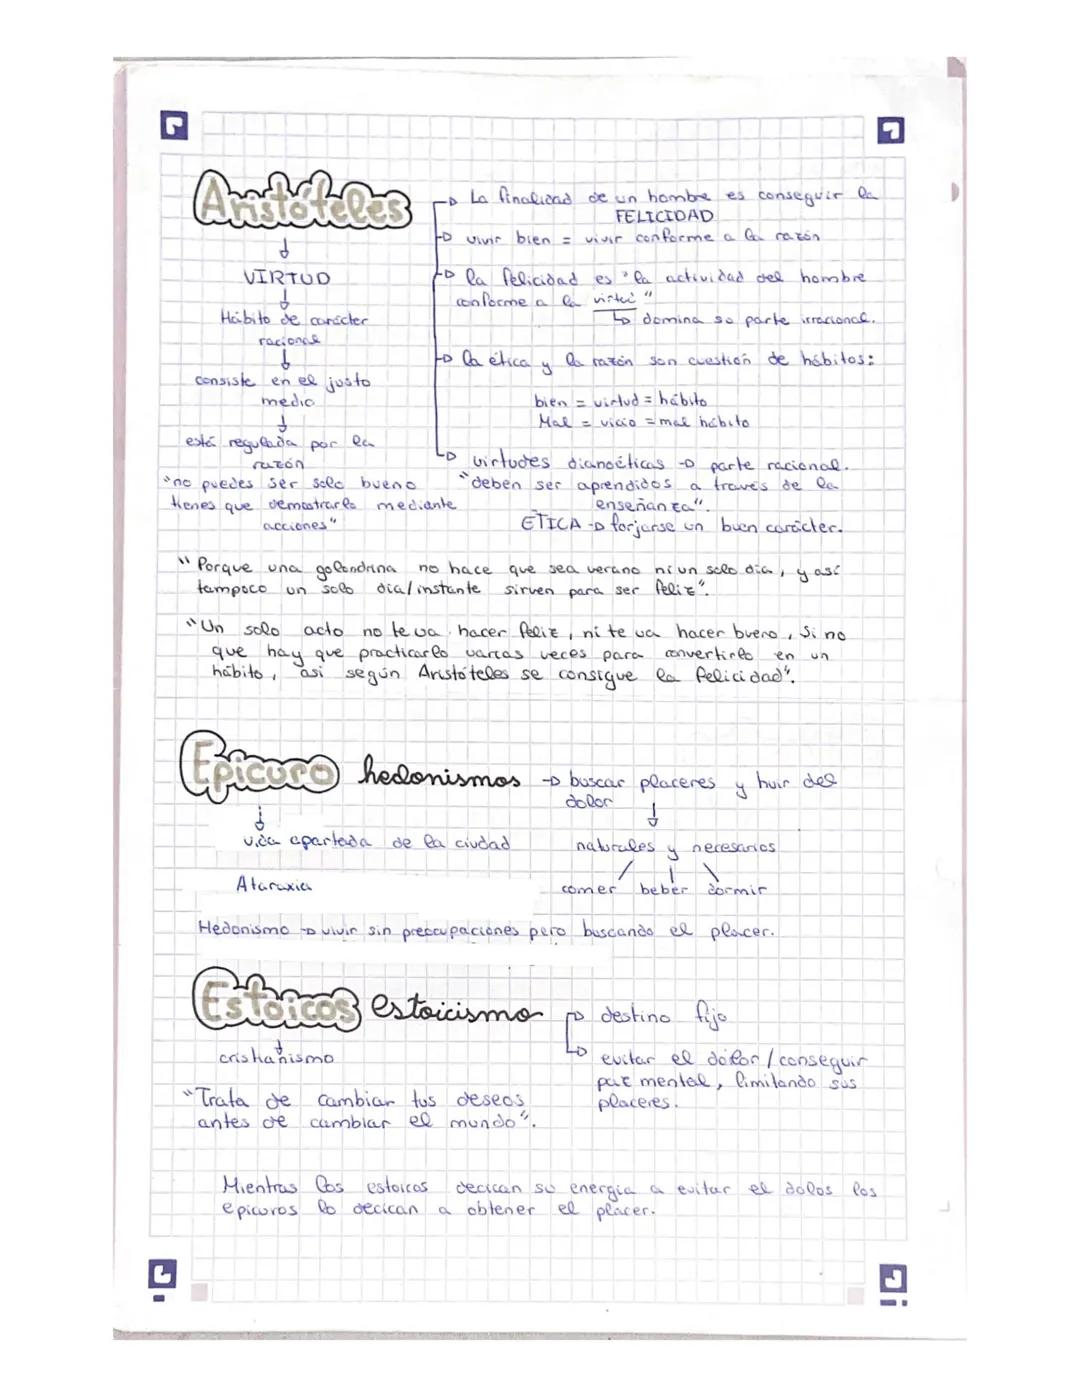 Aristóteles
VIRTUD
Hábito de carácter
racional
consiste en el justo
medio
está regulada por la
razón
"no puedes ser solo bueno
tienes que demostrarlo mediante
acciones"
La finalidad de un hombre es conseguir la
FELICIDAD
vivir bien = vivir conforme a la razón
la felicidad es "la actividad del hombre
conforme a la virtud"
domina su parte irracional.
la ética y la razón son cuestión de hábitos:
bien = virtud = hábito
Mal = vicio = mal hábito
virtudes dianoéticas → parte racional.
"deben ser aprendidos a través de la
enseñanza".
ETICA → forjarse un buen carácter.
"Porque una golondrina no hace que sea verano ni un solo dia, y así
tampoco un solo dia/instante sirven para ser feliz".
"Un solo acto no te va hacer feliz, ni te va hacer bueno, Si no
que hay que practicarlo varias veces para convertirlo en un
hábito, asi según Aristóteles se consigue la felicidad".
Epicuro hedonismos → buscar placeres y huir del
dolor
vida apartada de la ciudad
naturales y necesarios
Ataraxia
comer beber dormir
Hedonismo → vivir sin preocupaciones pero buscando el placer.
Estoicos estoicismo
destino fijo
cristianismo
evitar el dolor/conseguir
paz mental, limitando sus
placeres.
"Trata de cambiar tus deseos
antes de cambiar el mundo".
Mientras los estoicos decican su energia a evitar el dolos los
epicuros lo decican a obtener el placer.